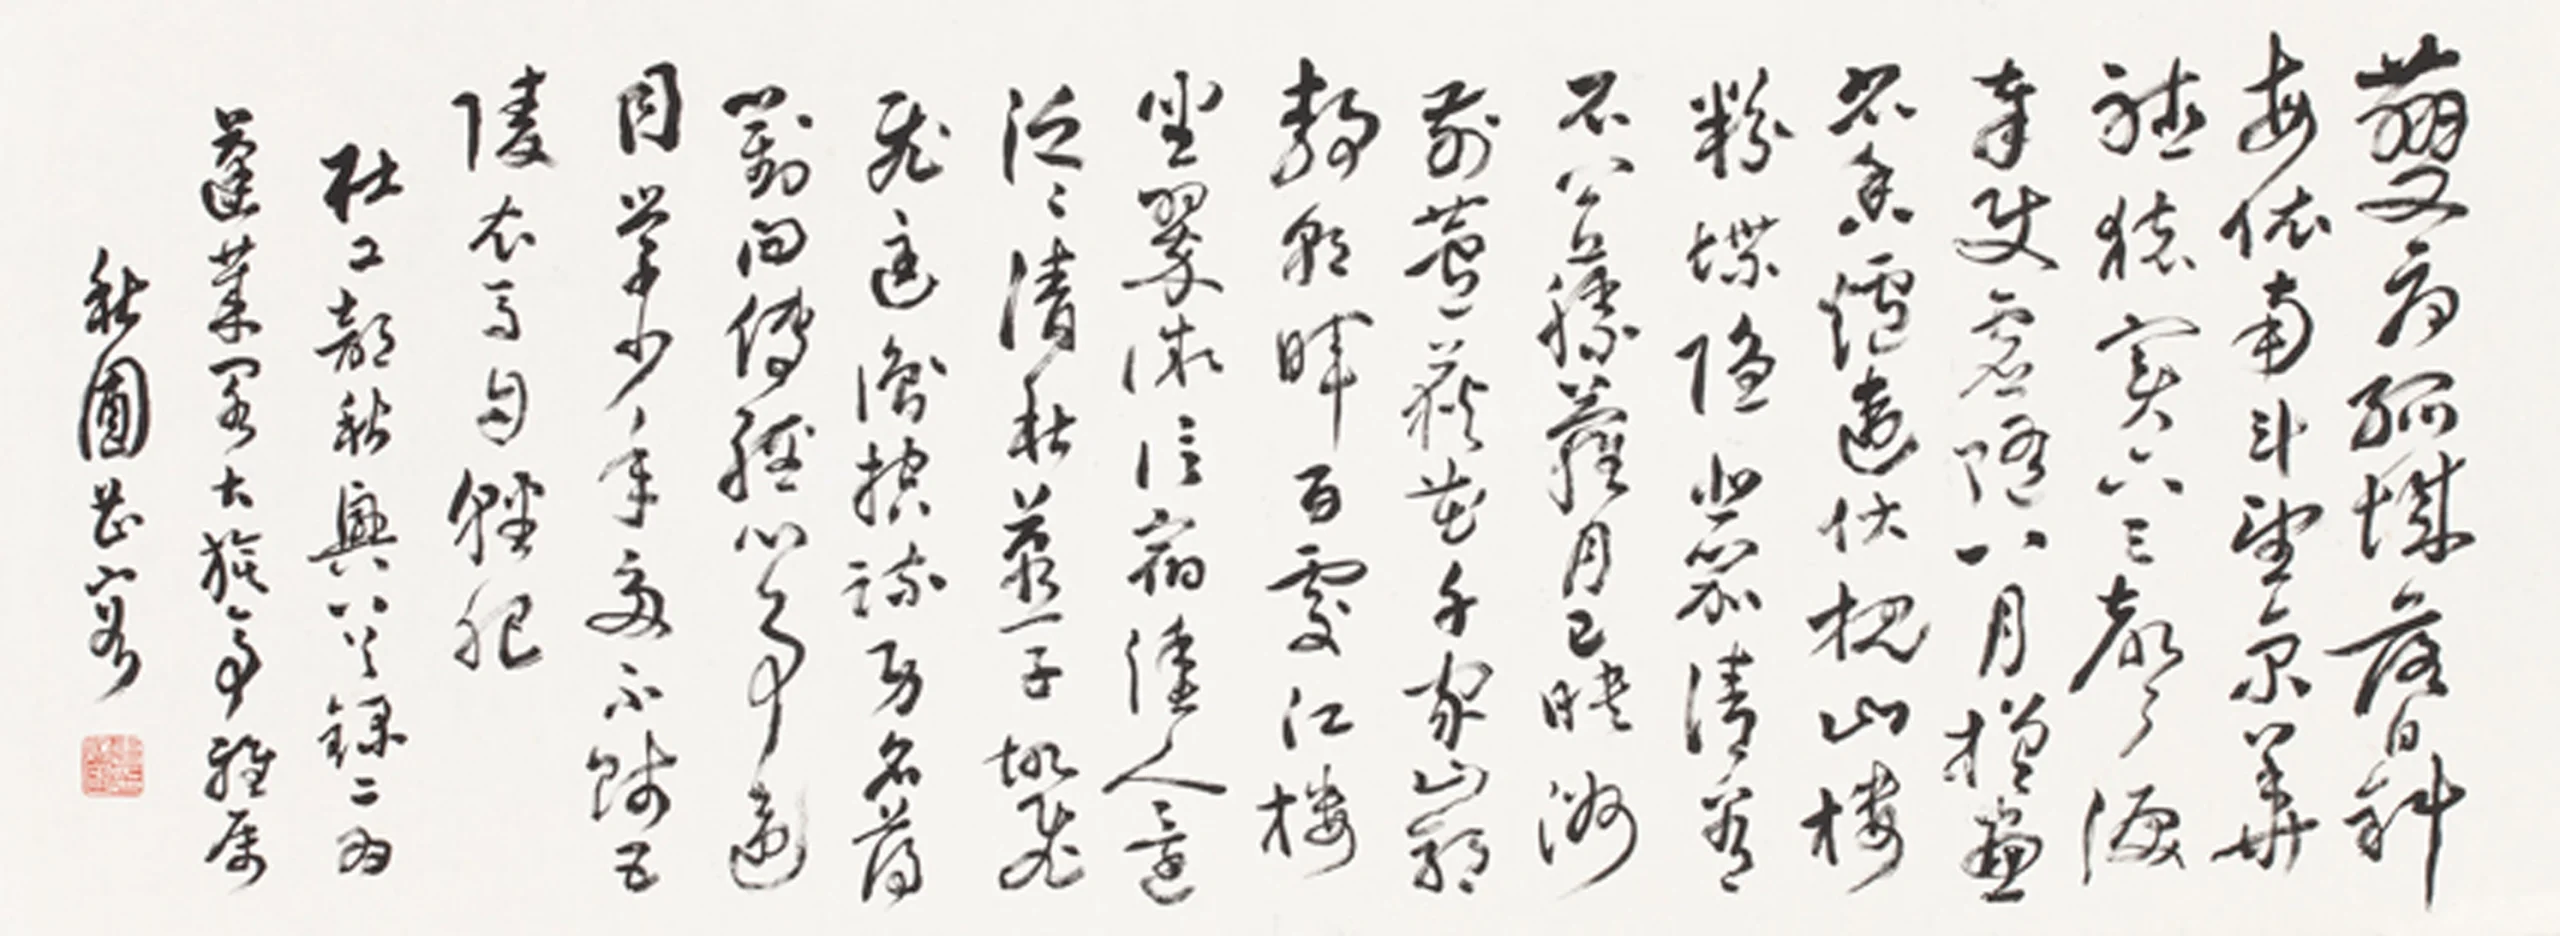 夔府孤城落日斜
每依南斗望京華
聽猿實下三聲淚
奉使虛隨八月槎畫
省香爐違伏枕山樓
粉堞隱悲笳請看
石上藤蘿月已映洲
前蘆荻花千家山郭
靜朝暉百處江樓
坐翠微信宿漁人還
泛〻清秋燕子故飛
飛匡衡抗疏功名薄
劉向傳經心事違
同學少年多不賤五
陵衣馬自輕肥
杜工部秋興八首錄二為
蓬萊閣大旅亭雅屬
秋